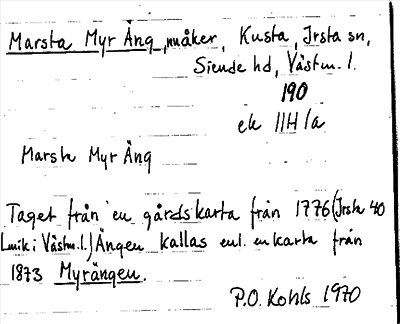 Marsta Myr Äng, nuåker, Kusta, Irsta sn,
Siende hd, Västm. l.
190
ek 11H 1a
Marsta Myr Äng
Taget från en gårdskarta från 1776 (Irsta 40
Lmik i Västm. l.) Ängen kallas enl. en karta från
1873 Myrängen.
P.O. Kohls 1970